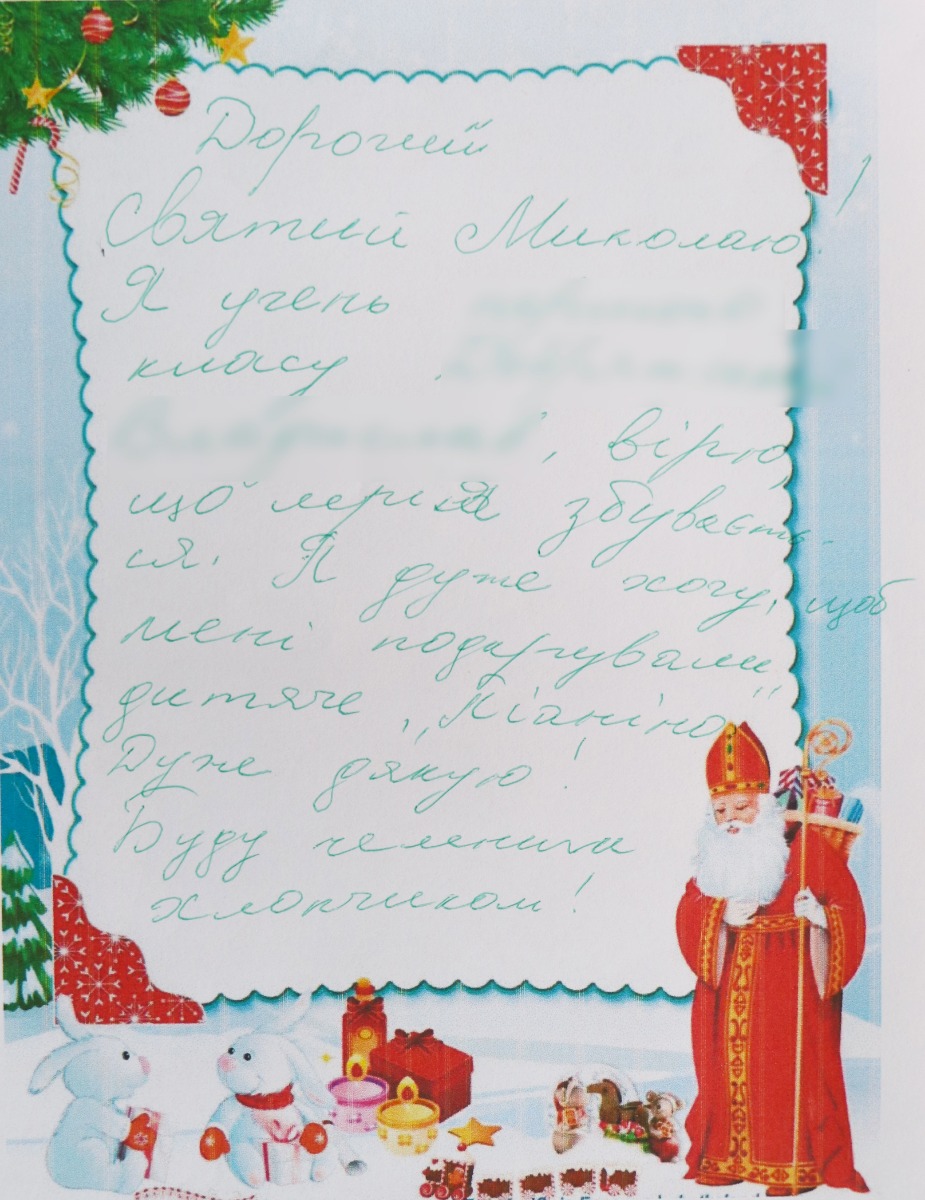 Дорогий
Святий Миколаю!
Я учень
класу
, вірю,
що мрія збуваєть-
ся. Я дуже хочу, щоб
мені подарували
дитяче „Піаніно"
Дуже дякую!
Буду чемним
хлопчиком!